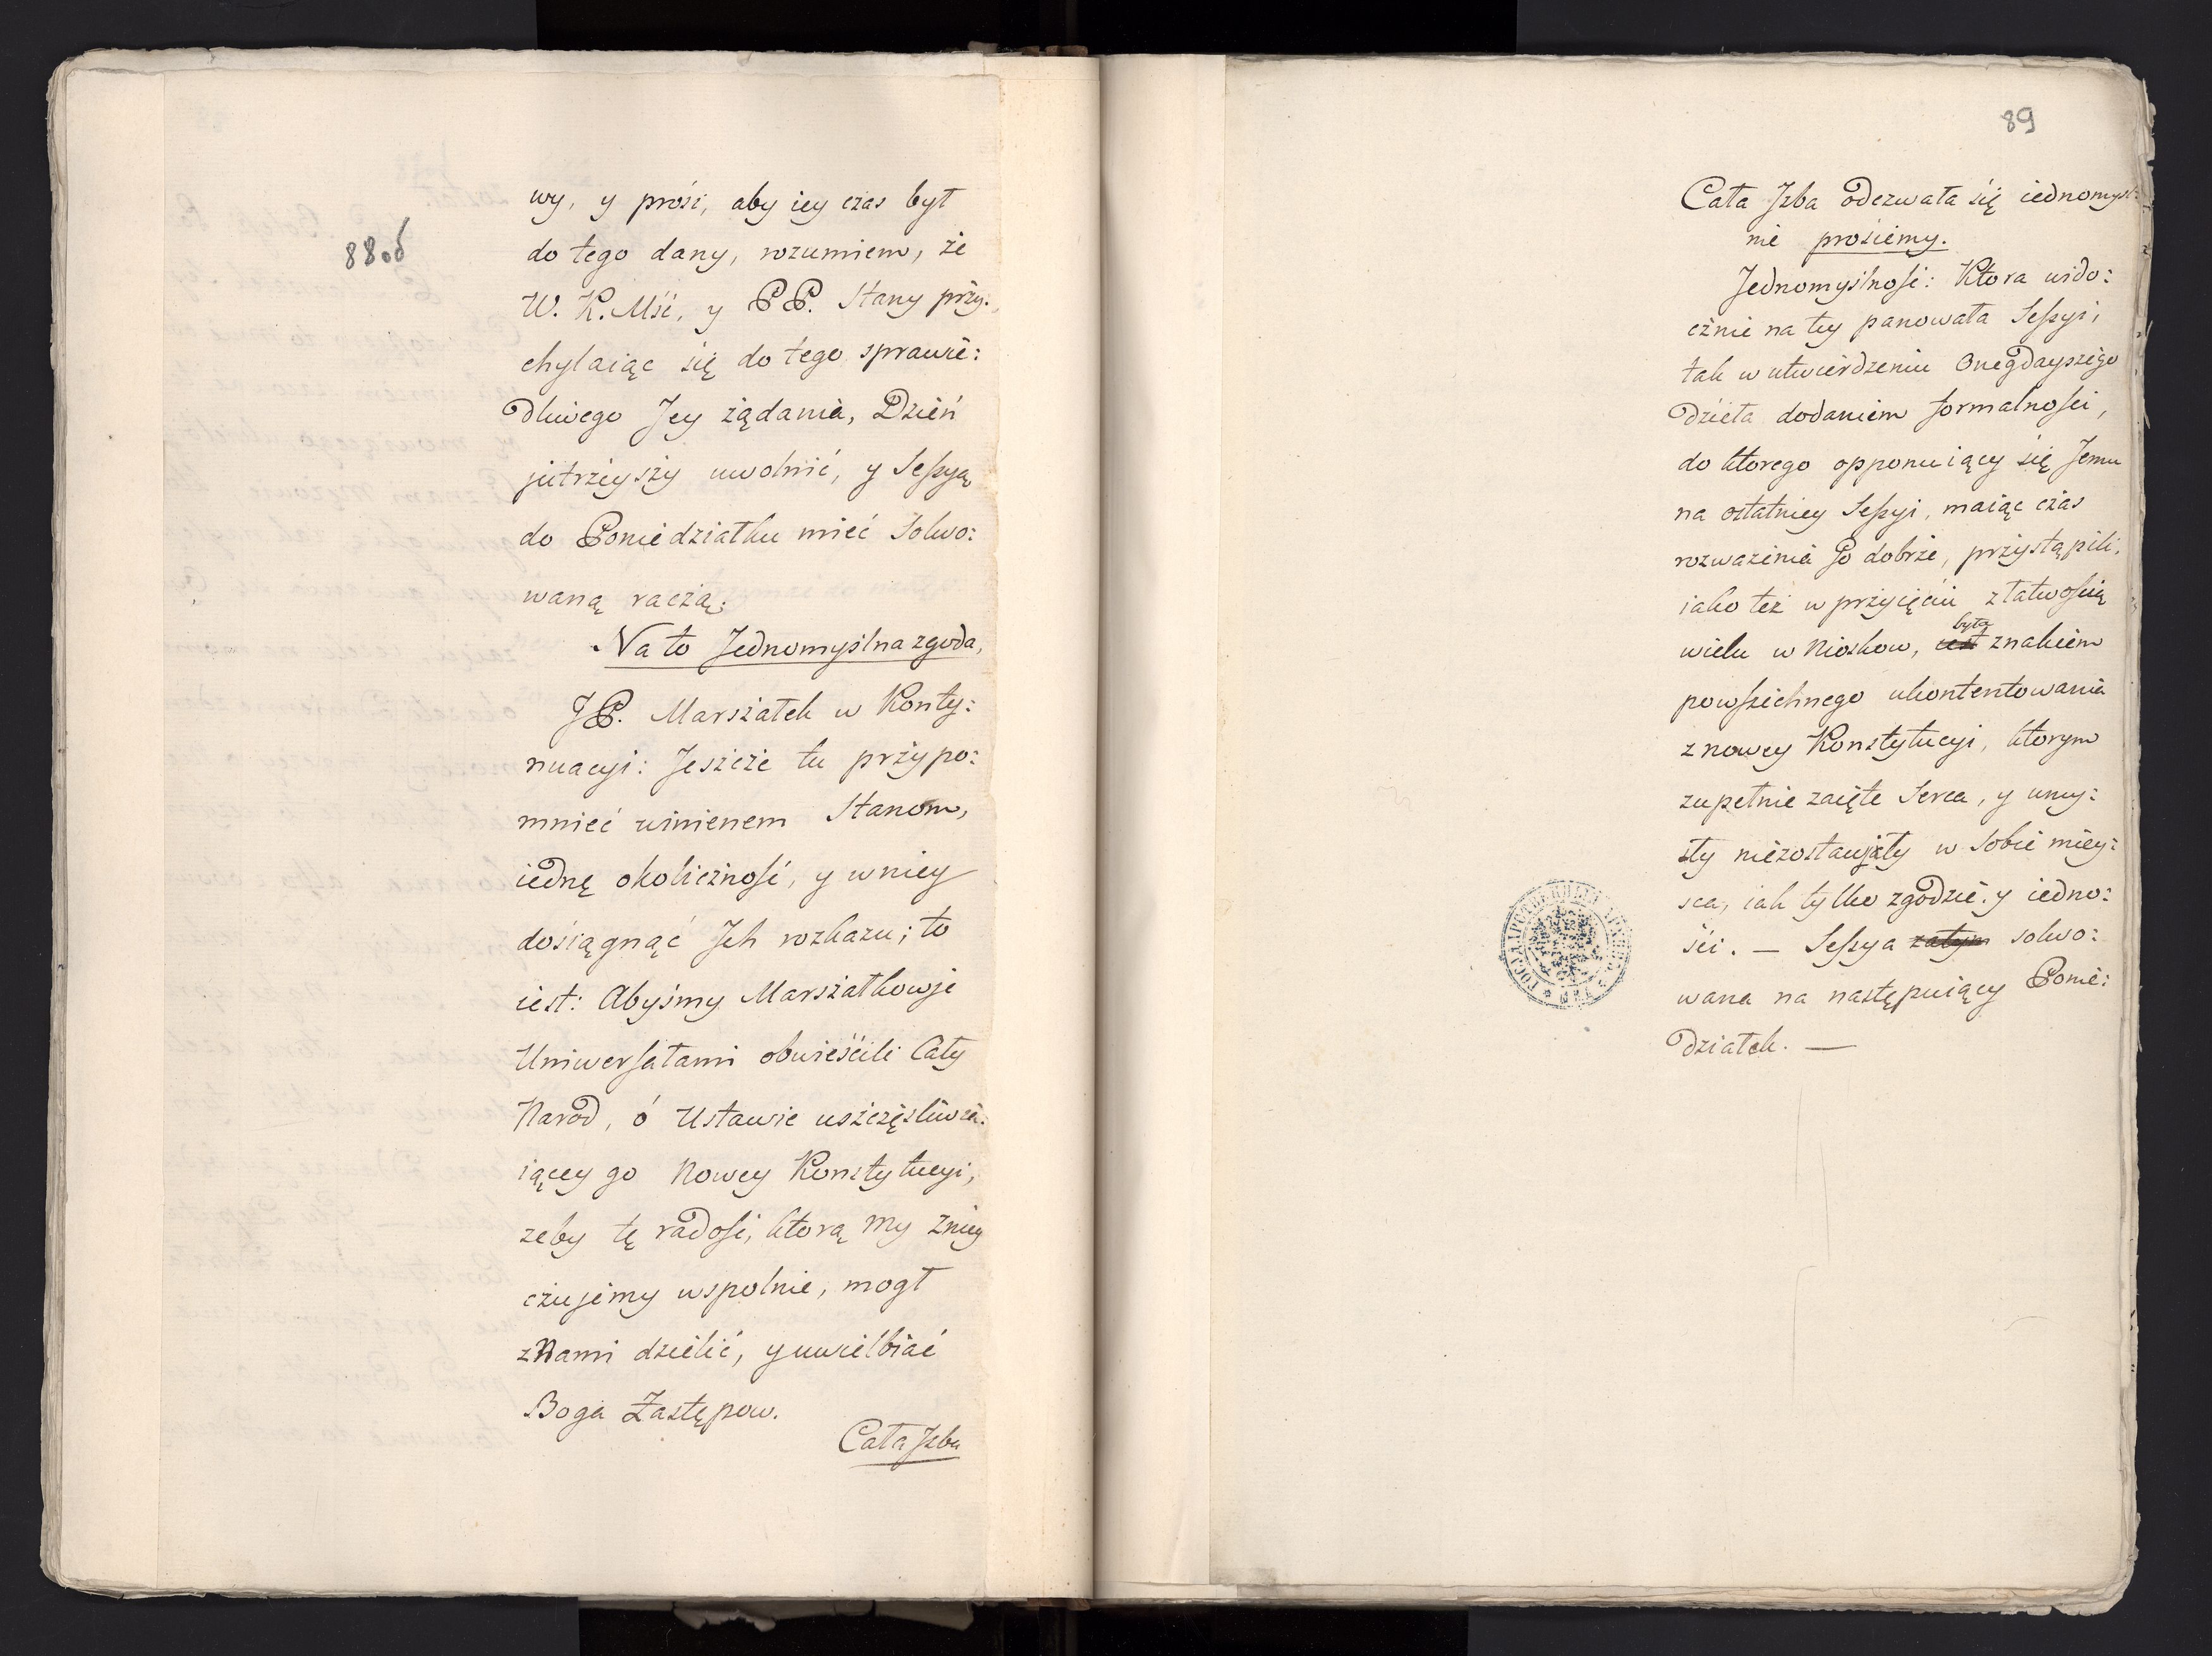 88об
wy, y prósi, aby iey czas był
do tego dany, rozumiem, że
W. K. Mść, y PP. Stany przy-
chylaiąc się do tego sprawie:
dliwego Jey żądania, Dzień
jutrzeyszy uwolnić, y Sessyą
do Poniedziałku mieć Solwo:
waną raczą.
Na to Jednomyslna zgoda,
JP. Marszałek w Konty:
nuacyi: Jeszcze tu przypo:
mnieć winienem Stanom,
iednę okoliczność, y w niey
dosiągnąć Jch rozkazu; to
iest: Abyśmy Marszałkowje
Uniwersałami obwieścili Cały
Narod, ó Ustawie uszczęsliwia:
iącey go Nowey Konstytucyi,
zeby tę radość, ktorą my z niey
czujemy wspolnie, mogł
z Nami dzielić, y uwielbiać
Boga Zastępow.
Cała Jzba
89
Cała Jzba odezwała się iednomyśl:
nie prosiemy.
Jednomyslność: Ktora wido:
cznie na tey panowała Sessyi,
tak w utwierdzeniu Onegdayszego
dzieła dodaniem formalności,
do ktorego opponuiący się Jemu
na ostatniey Sessyi, maiąc czas
rozwazenia Go dobrze, przystąpili,
iako też w przyięciu z łatwością
wielu w Nioskow, iest była znakiem
powszechnego ukontentowania
z nowey Konstytucyi, ktorym
zupełnie zaięte Serca, y umy:
sły niezostawiały w Sobie miey:
sca, iak tylko zgodzie. y iedno:
ści. — Sessya zatym solwo:
wana na następuiący Ponie:
działek. —